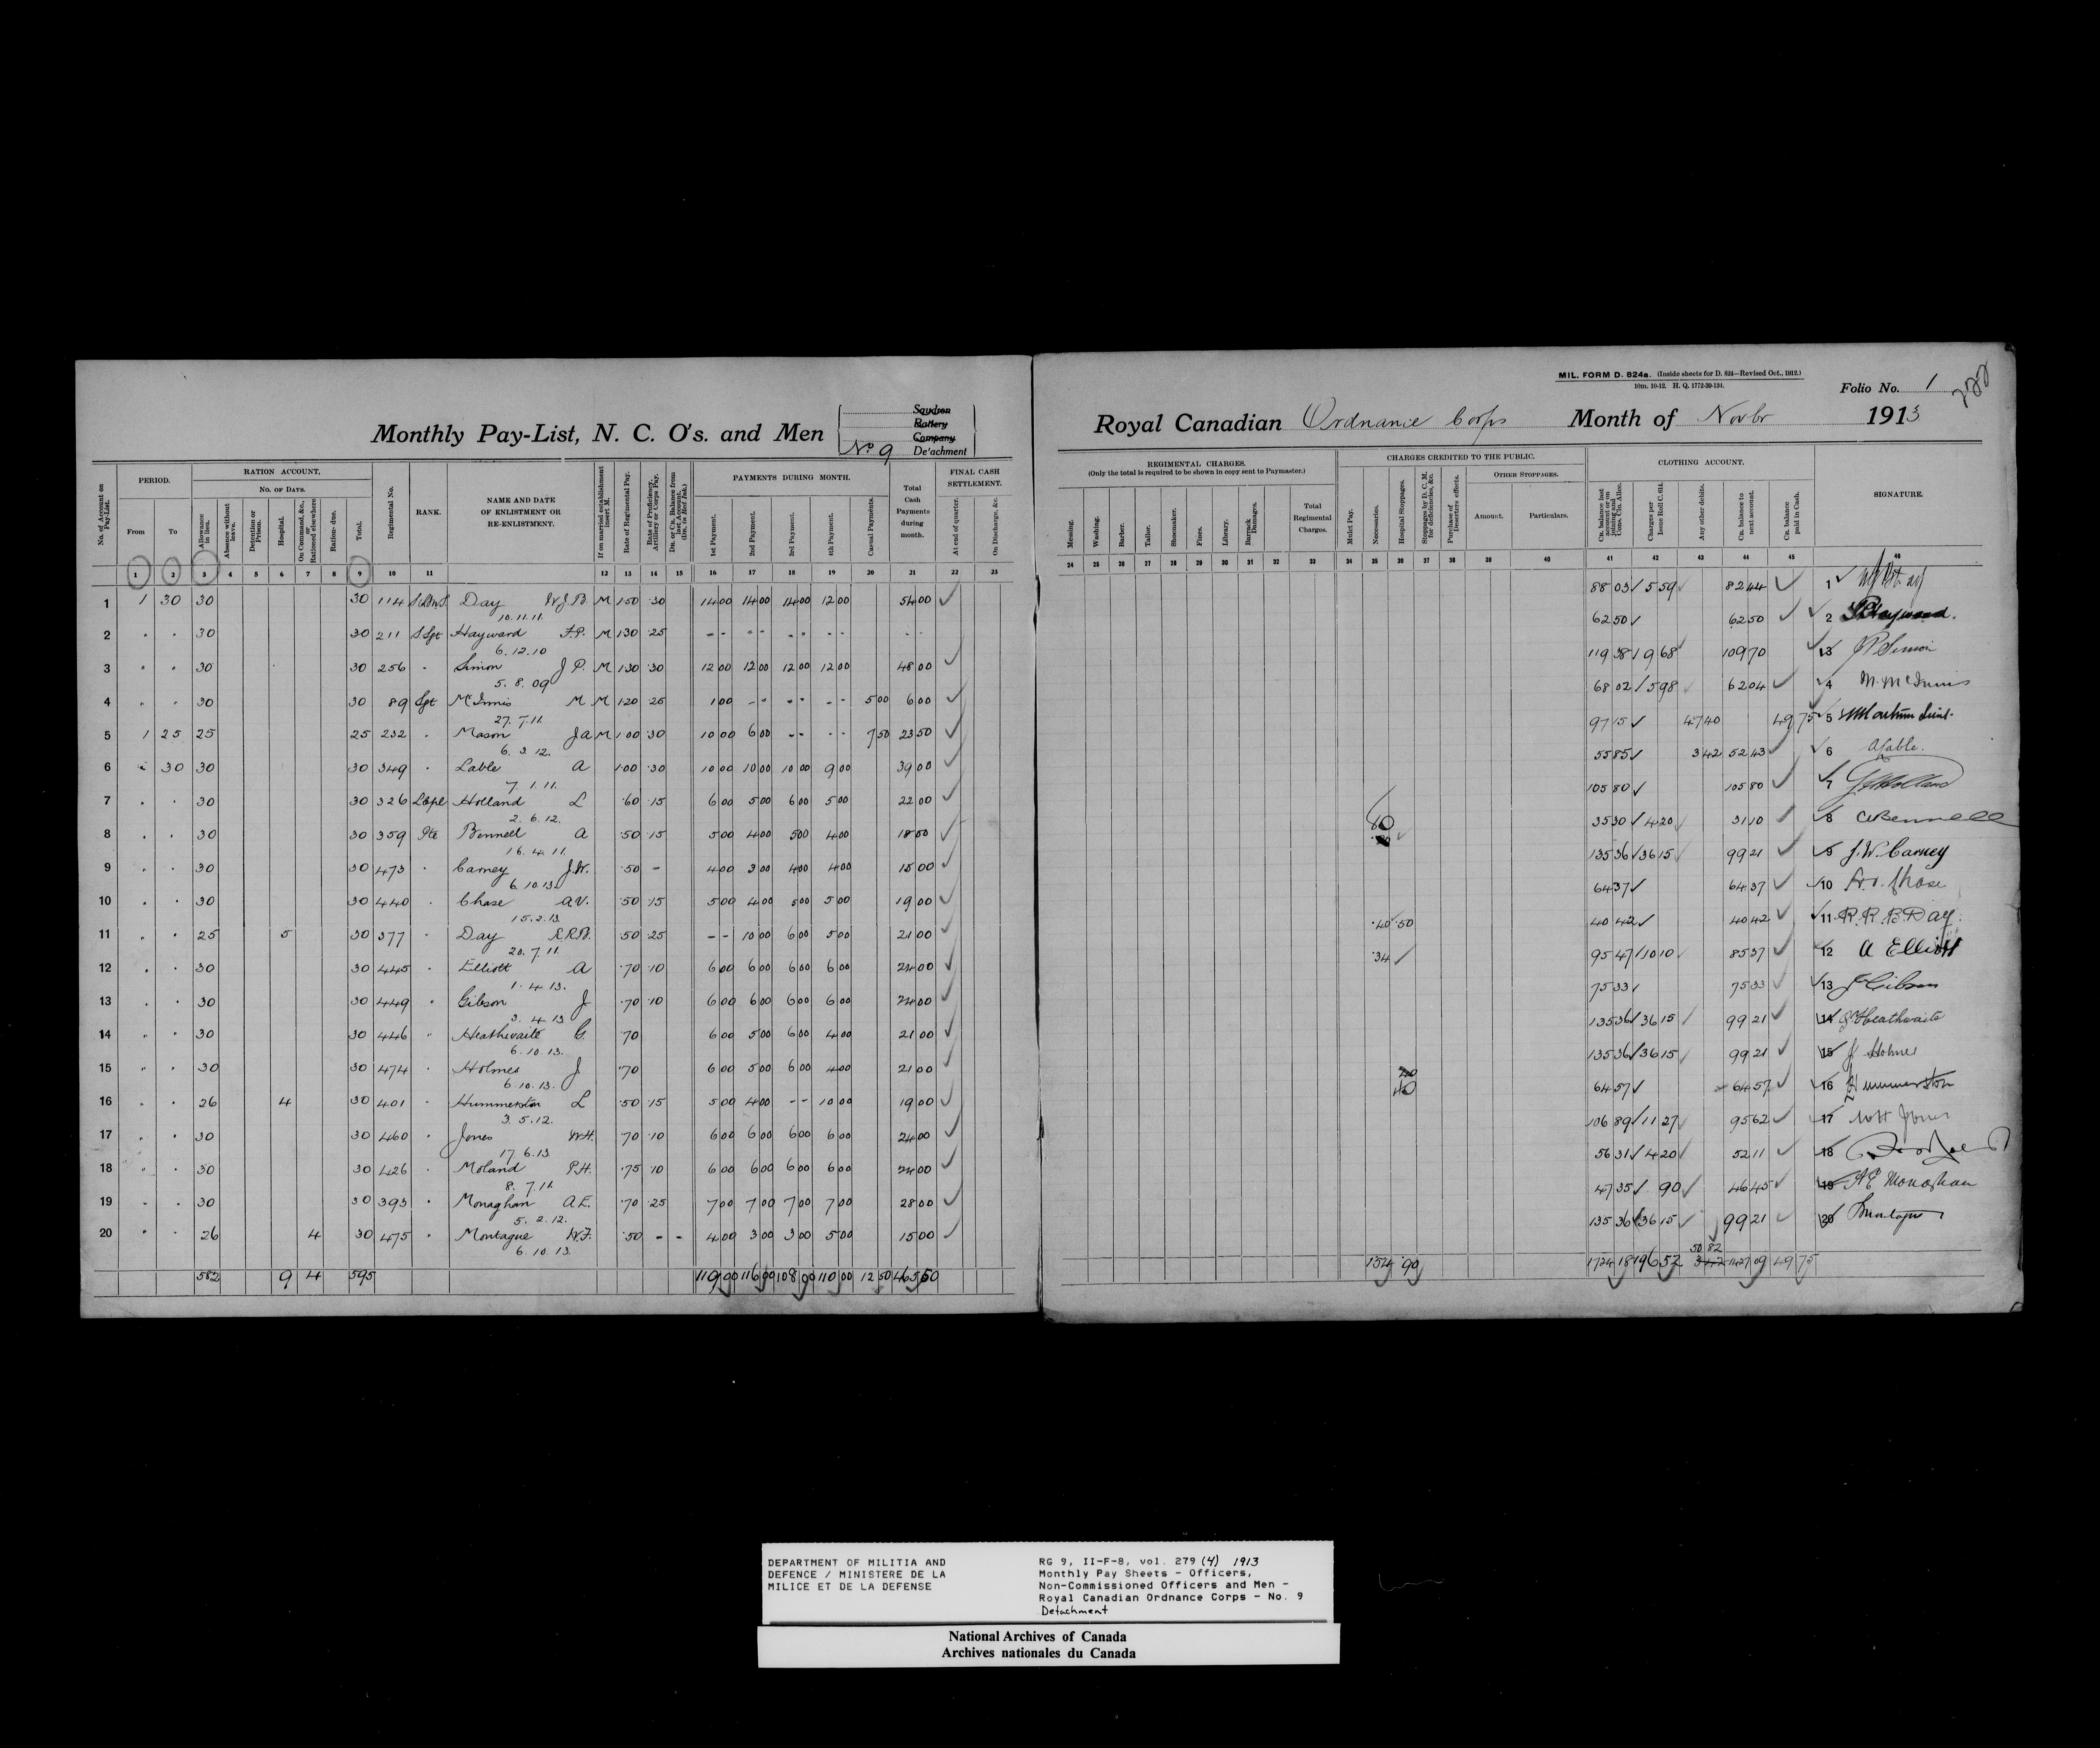 MIL. FORM D. 824a. (Inside sheets for D. 824—Revised Oct., 1912.)
10m. 10-12. H. Q. 1772-39-134.
Folio No. 1
Monthly Pay-List, N. C. O's. and Men
Squdron
Battery
Company
No 9 De'achment
Royal Canadian Ordnance Corps Month of Novbr 1913
No. of Account on Pay-List.
PERIOD.
From
To
RATION ACCOUNT.
No. of Days.
Allowance in lieu.
Absence without leave.
Detention or Prison.
Hospital.
On Command, &c., or Rationed elsewhere
Ration due.
Total.
Regimental No.
RANK.
NAME AND DATE OF ENLISTMENT OR RE-ENLISTMENT.
If on married establishment insert M.
Rate of Regimental Pay.
Rate of Proficiency, Artillery or Corps Pay.
PAYMENTS DURING MONTH.
1st Payment.
2nd Payment.
3rd Payment.
4th Payment.
Casual Payments.
Total Cash Payments during month.
FINAL CASH SETTLEMENT.
At end of quarter.
On Discharge, &c.
REGIMENTAL CHARGES.
(Only the total is required to be shown in copy sent to Paymaster.)
Messing.
Washing.
Barber.
Tailor.
Shoemaker.
Fines.
Library.
Barrack Damages.
Total Regimental Charges.
CHARGES CREDITED TO THE PUBLIC.
Mulct Pay.
Necessaries.
Hospital Stoppages.
Stoppages by D. C. M. for deficiencies, &c.
Purchase of Deserters effects.
OTHER STOPPAGES.
Amount.
Particulars.
CLOTHING ACCOUNT.
Charges per Issue Roll C. 614.
Any other debits.
Cr. balance to next account.
Cr. balance paid in Cash.
SIGNATURE.
1 2 3 4 5 6 7 8 9 10 11 12 13 14 15 16 17 18 19 20 21 22 23
24 25 26 27 28 29 30 31 32 33 34 35 36 37 38 39 40 41 42 43 44 45 46
1 1 30 30 30 114 Day W.J.B. M 1.50 .30 14 00 14 00 14 00 12 00 54 00 88 03 5 59 82 44 1
10.11.11.
2 " " 30 30 211 S Sgt Hayward F.P. M 1 30 .25 - - - - - - - - - - 62 50 62 50 2
6.12.10
3 " " 30 30 256 " Simon J P. M 1 30 .30 12 00 12 00 12 00 12 00 48 00 119 38 9 68 109 70 3 J P Simon
5. 8. 09
4 " " 30 30 89 Sgt McInnis M M 1 20 .25 1 00 - - - - - - 5 00 6 00 68 02 5 98 62 04 4 M. McInnis
27. 7.11.
5 1 25 25 25 232 " Mason J a M 1 00 .30 10 00 6 00 - - - - 7 50 23 50 97 15 47 40 49 75 5
6. 3 12.
6 " 30 30 30 349 " Lable A 1.00 .30 10 00 10 00 10 00 9 00 39 00 55 85 3 42 52 43 6 A Lable.
7. 1. 11.
7 " " 30 30 326 LCpl Holland L .60 .15 6 00 5 00 6 00 5 00 22 00 105 80 105 80 7
2. 6. 12.
8 " " 30 30 359 Pte Bennell A .50 .15 5 00 4 00 5 00 4 00 18 00 .80 35 30 4 20 31 10 8 A Bennell
16. 4. 11.
9 " " 30 30 473 " Carney J.W. .50 - 4 00 3 00 4 00 4 00 15 00 135 36 36 15 99 21 9 J. W. Carney
6. 10. 13.
10 " " 30 30 440 " Chase A.V. .50 .15 5 00 4 00 5 00 5 00 19 00 64 37 64 37 10
15.2.13.
11 " " 25 5 30 377 " Day R.R.B. .50 .25 - - 10 00 6 00 5 00 21 00 .40 .50 40 42 40 42 11 R. R. B. Day.
20. 7. 11.
12 " " 30 30 445 " Elliott A .70 .10 6 00 6 00 6 00 6 00 24 00 .34 95 47 10 10 85 37 12 A Elliott
1. 4. 13.
13 " " 30 30 449 " Gibson J .70 .10 6 00 6 00 6 00 6 00 24 00 75 33 75 33 13 J Gibson
3. 4. 13
14 " " 30 30 446 " Heathwaite G. .70 6 00 5 00 6 00 4 00 21 00 135 36 36 15 99 21 14 G Heathwaite
6. 10. 13.
15 " " 30 30 474 " Holmes J .70 6 00 5 00 6 00 4 00 21 00 135 36 36 15 99 21 15 J Holmes
6. 10. 13.
16 " " 26 4 30 401 " Hummerston L .50 .15 5 00 4 00 - - 10 00 19 00 40 64 57 64 57 16 L Hummerston
3. 5. 12.
17 " " 30 30 460 " Jones W.H. .70 .10 6 00 6 00 6 00 6 00 24 00 106 89 11 27 95 62 17 W H Jones
17. 6. 13
18 " " 30 30 426 " Moland P.H. .75 .10 6 00 6 00 6 00 6 00 24 00 56 31 4 20 52 11 18
8. 7. 11.
19 " " 30 30 393 " Monaghan A.E. .70 .25 7 00 7 00 7 00 7 00 28 00 47 35 90 46 45 19 A E Monaghan
5. 2. 12.
20 " " 26 4 30 475 " Montague W.F. .50 - - 4 00 3 00 3 00 5 00 15 00 135 36 36 15 99 21 20
6. 10. 13.
582 9 4 595 119 00 116 00 108 00 110 00 12 50 465 50 1 54 .90 1724 18 196 52 50 82 1427 09 49 75
DEPARTMENT OF MILITIA AND
DEFENCE / MINISTERE DE LA
MILICE ET DE LA DEFENSE
RG 9, II-F-8, vol. 279 (4) 1913
Monthly Pay Sheets - Officers,
Non-Commissioned Officers and Men -
Royal Canadian Ordnance Corps - No. 9
Detachment
National Archives of Canada
Archives nationales du Canada